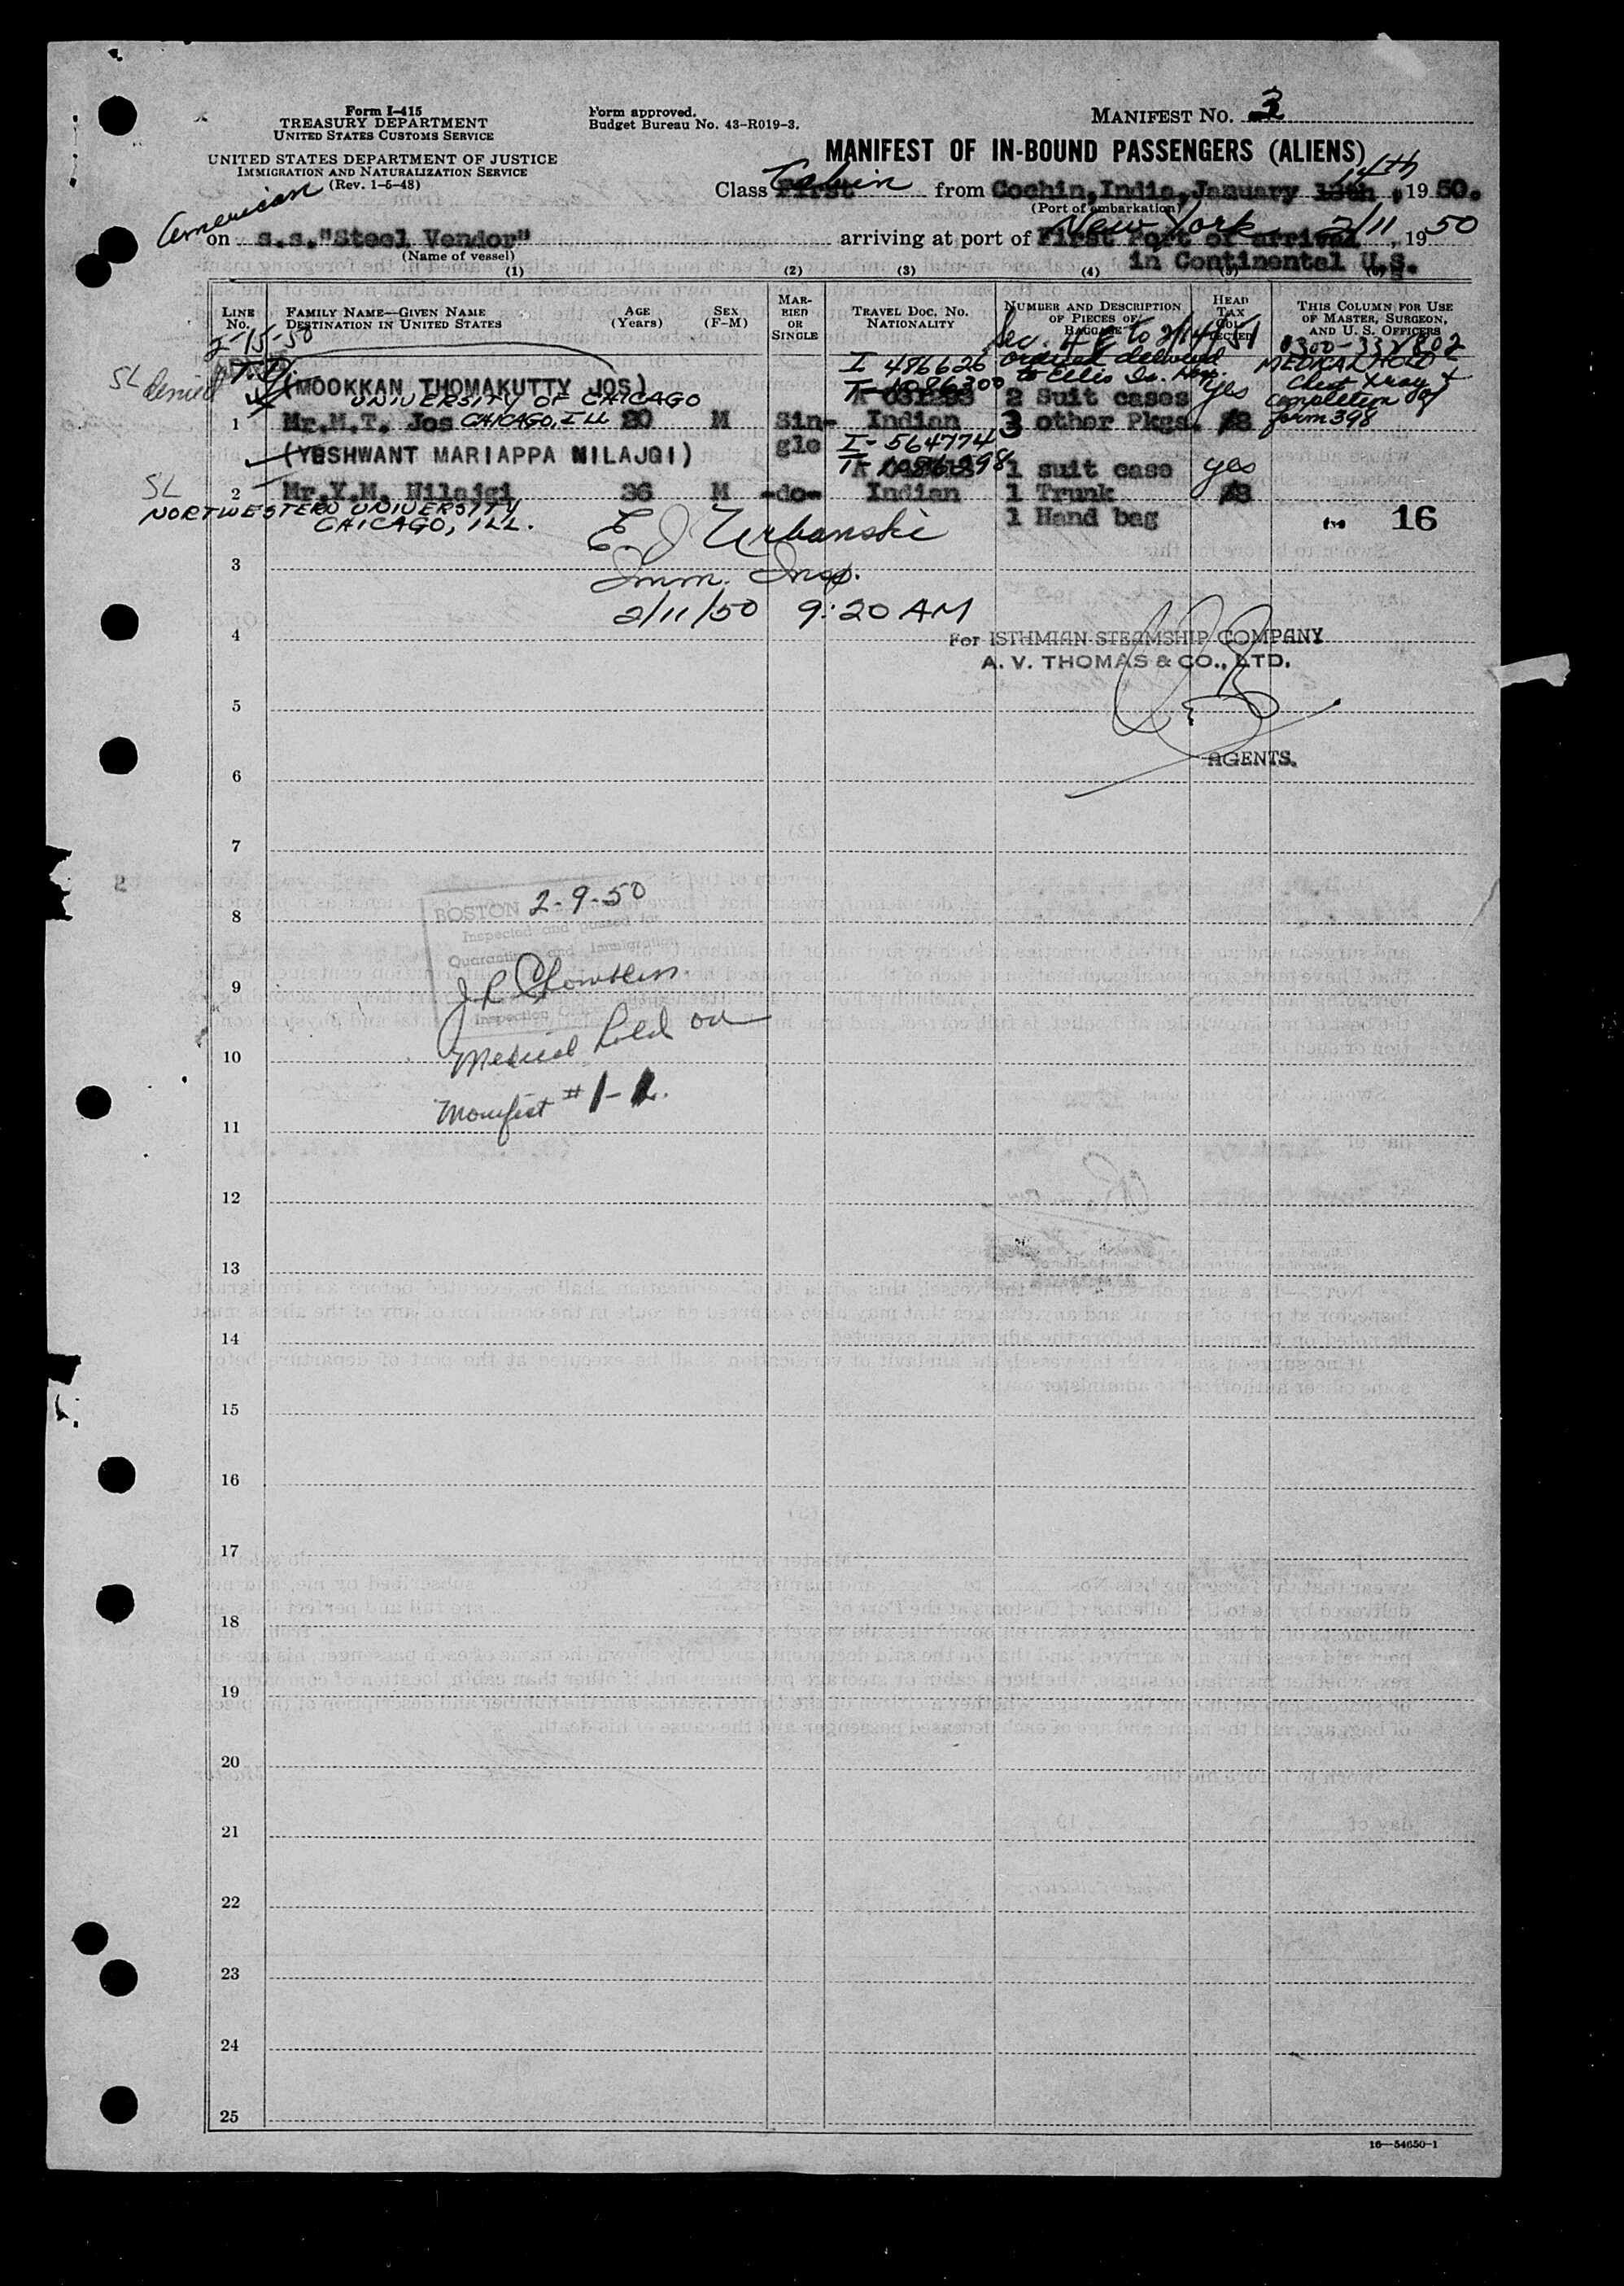 Form I-415
TREASURY DEPARTMENT
UNITED STATES CUSTOMS SERVICE
UNITED STATES DEPARTMENT OF JUSTICE
IMMIGRATION AND NATURALIZATION SERVICE
(Rev. 1-5-48)
Form approved.
Budget Bureau No. 43-R019-3.
MANIFEST NO. 3
MANIFEST OF IN-BOUND PASSENGERS (ALIENS)
Class First Cabin from Cochin, India, January 13th 14th, 1950.
(Port of embarkation)
American
on s.s."Steel Vendor" arriving at port of First Port of arrival New York 2/11, 1950
(Name of vessel)
in Continental U.S.
(1) (2) (3) (4)
LINE No.
FAMILY NAME—GIVEN NAME
DESTINATION IN UNITED STATES
AGE (Years)
SEX (F-M)
MARRIED OR SINGLE
TRAVEL DOC. NO.
NATIONALITY
NUMBER AND DESCRIPTION OF PIECES OF BAGGAGE
HEAD TAX COLLECTED
THIS COLUMN FOR USE OF MASTER, SURGEON, AND U. S. OFFICERS
2-15-50
0300-332802
SL denied
I 486626
ordered delivered
to Ellis Is. Hosp.
MEDICAL HOLD
Chest Xray &
completion of
form 398
(MOOKKAN THOMAKUTTY JOS)
UNIVERSITY OF CHICAGO
2 Suit cases yes
1 Mr.M.T. Jos CHICAGO, ILL 20 M Single Indian 3 other Pkgs. $8
(YESHWANT MARIAPPA NILAJGI)
I-564774
1 suit case yes
SL
2 Mr.Y.M. Nilajgi 36 M -do- Indian 1 Trunk $8
NORTWESTERN UNIVERSITY
CHICAGO, ILL.
1 Hand bag
16
E. J Urbanski
Imm. Insp.
2/11/50 9:20 AM
3
4
For ISTHMIAN STEAMSHIP COMPANY
A. V. THOMAS & CO., LTD.
5
AGENTS.
6
7
8
BOSTON 2-9-50
Inspected and passed for
Quarantine and Immigration
9
Inspection
Medical hold on
10
Manifest #1-
11
12
13
14
15
16
17
18
19
20
21
22
23
24
25
16—54650-1